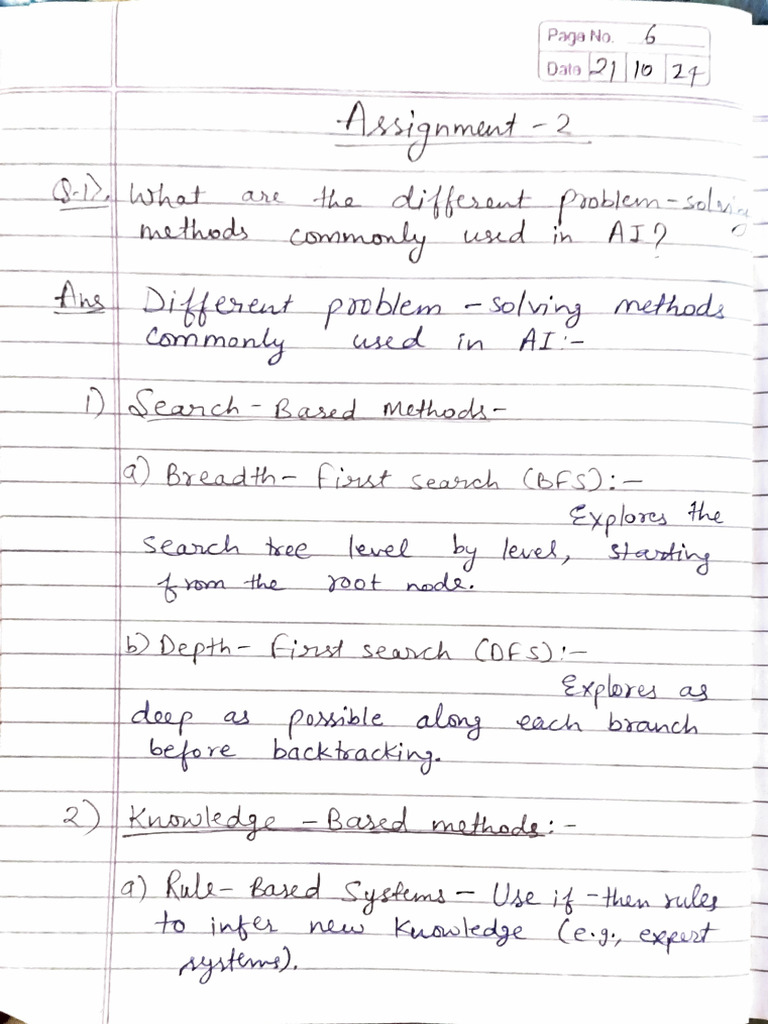 Page No. 6
Date 21 10 24
Assignment - 2
Q-1). What are the different problem-solving
methods commonly used in AI?
Ans Different problem-solving methods
commonly used in AI:-
1) Search-Based Methods-
a) Breadth-First search (BFS):-
Explores the
search tree level by level, starting
from the root node.
b) Depth-First search (DFS):-
Explores as
deep as possible along each branch
before backtracking.
2) Knowledge-Based methods:-
a) Rule-Based Systems - Use if-then rules
to infer new knowledge (e.g., expert
systems).